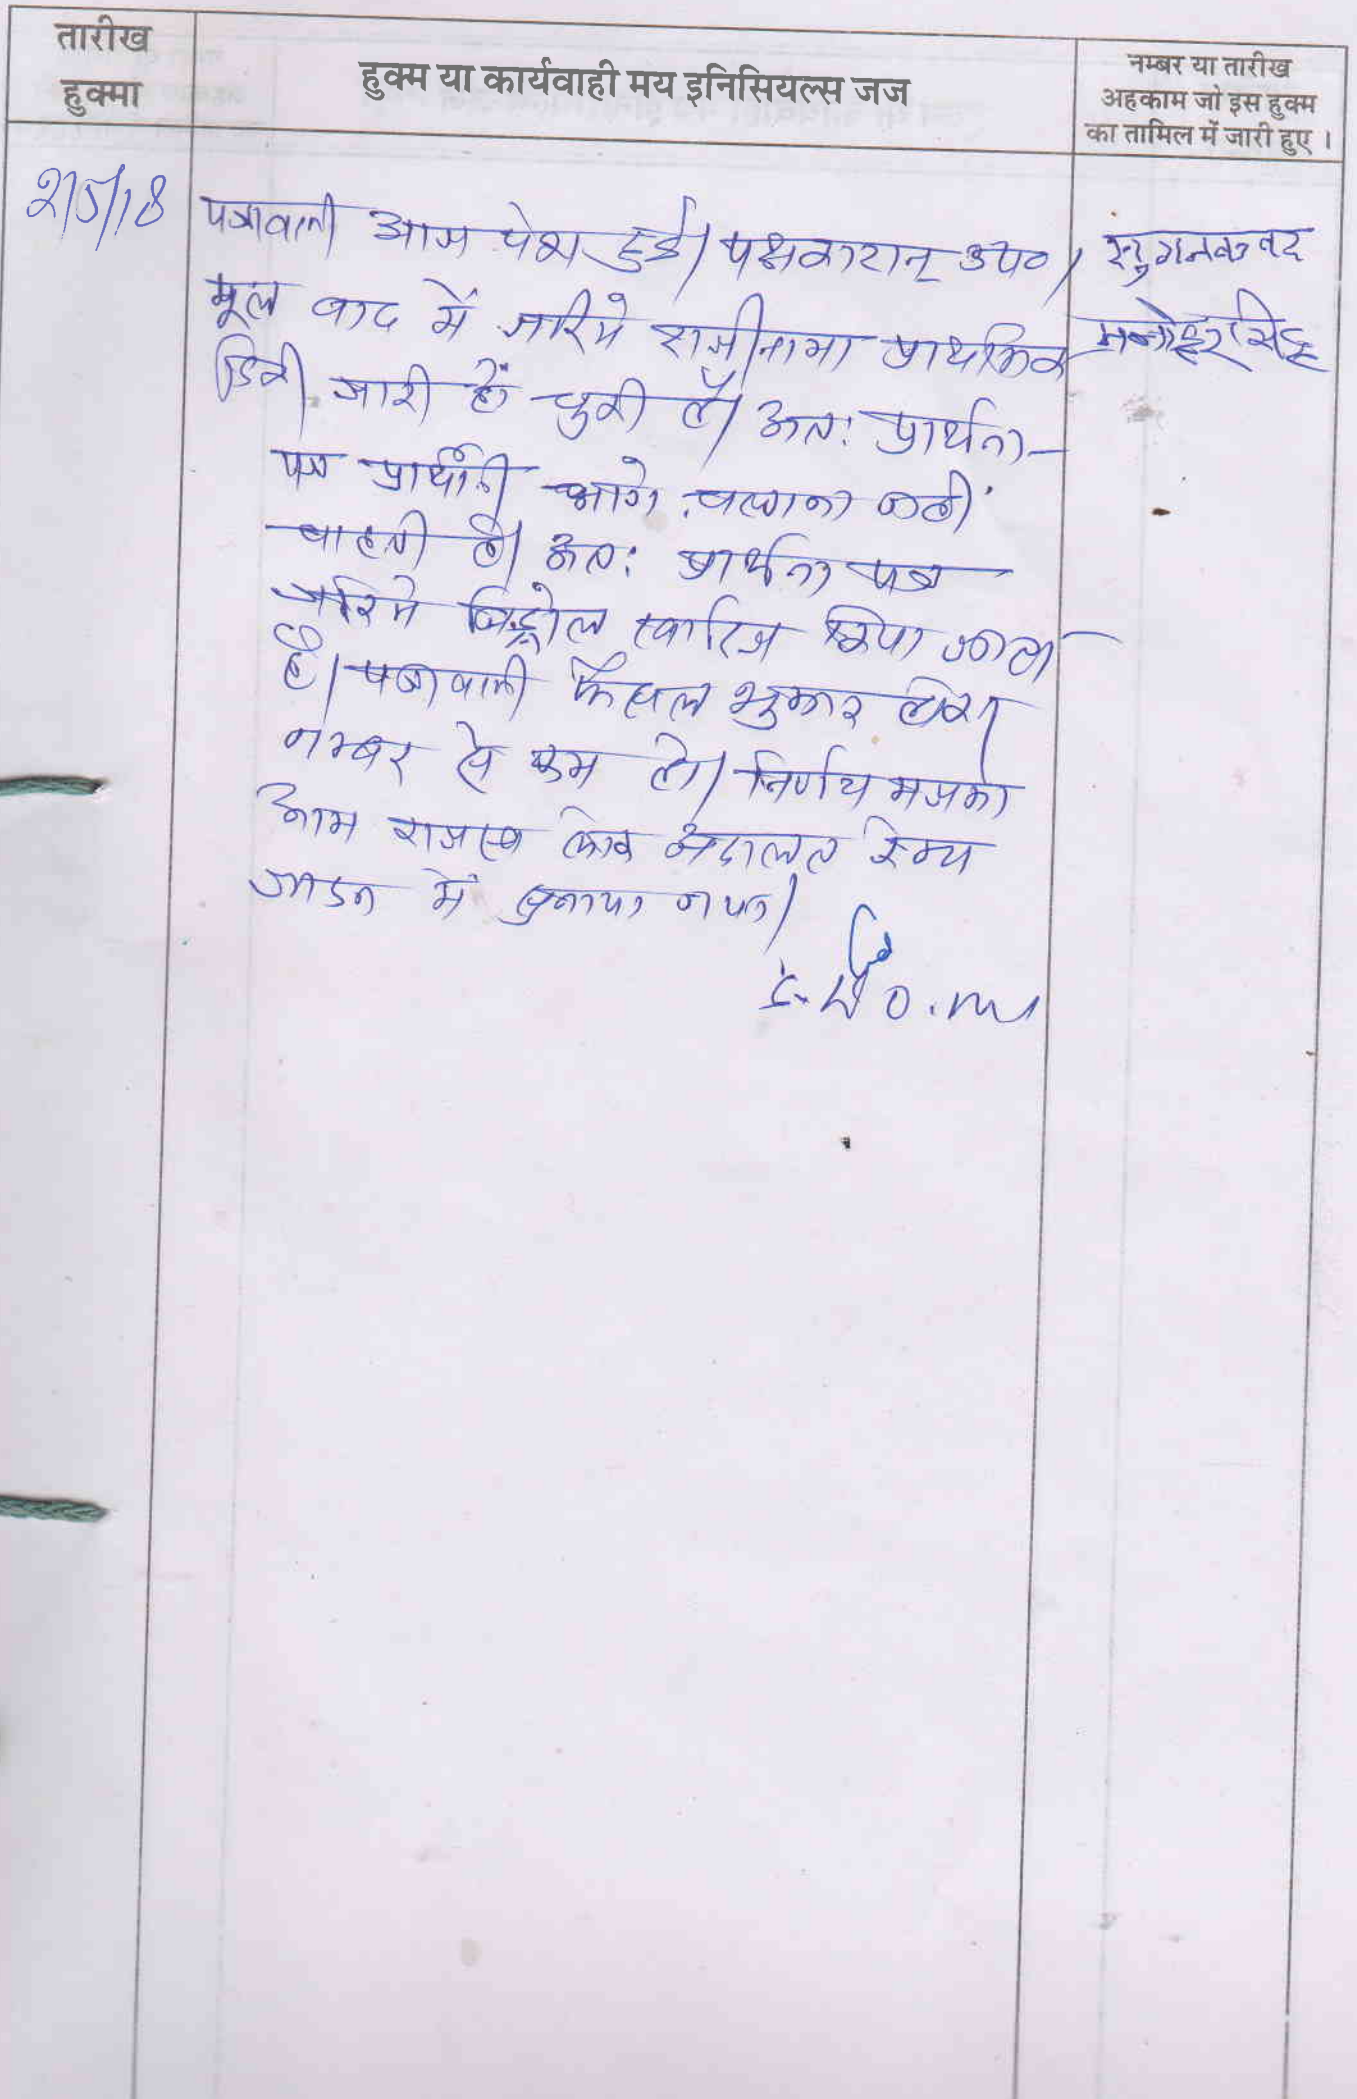 तारीख
हुक्मा
हुक्म या कार्यवाही मय इनिसियल्स जज
नम्बर या तारीख
अहकाम जो इस हुक्म
का तामिल में जारी हुए ।
2/5/18
पत्रावली आज पेश हुई। पक्षकारान् उप० ।
मूल वाद में जरिये राजीनामा प्राथमिक
डिक्री जारी हो चुकी है। अतः प्रार्थना-
पत्र प्रार्थीनी आगे चलाना नहीं
चाहती है। अतः प्रार्थना पत्र
जरिये विड्रोल खारिज किया जाता
है। पत्रावली फैसल शुमार होकर
नम्बर से कम हो। निर्णय
आम राजस्व लोक अदालत केम्प
जाडन में सुनाया गया।
सुगनकवर
मनोहरसिंह